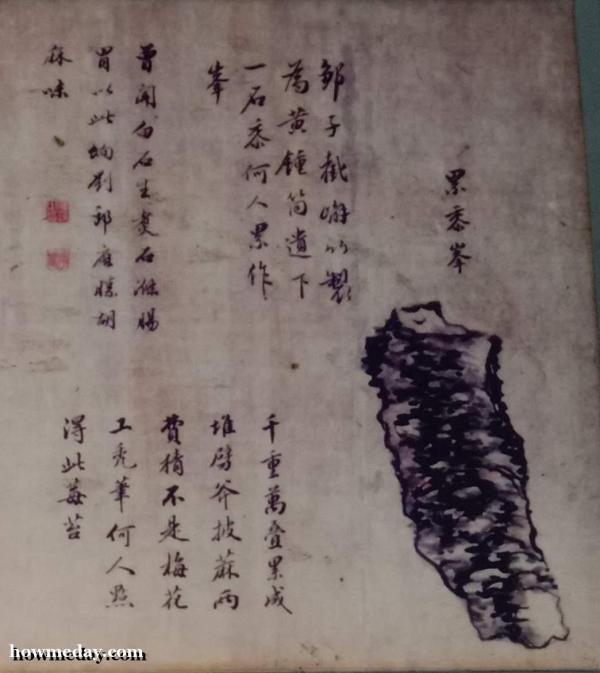 累黍峯
鄒子截嶰竹製
為黃鍾筒遺下
一石黍何人累作
峯
曾聞白石生煮石滌腸
胃以此餉劉郎應勝胡
麻味
千重萬叠累成
堆劈斧披蔴兩
費猜不是梅花
工禿筆何人點
得此莓苔
howmeday.com
howmeday.com